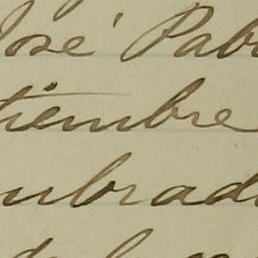 José Pab
tiembre
umbrad